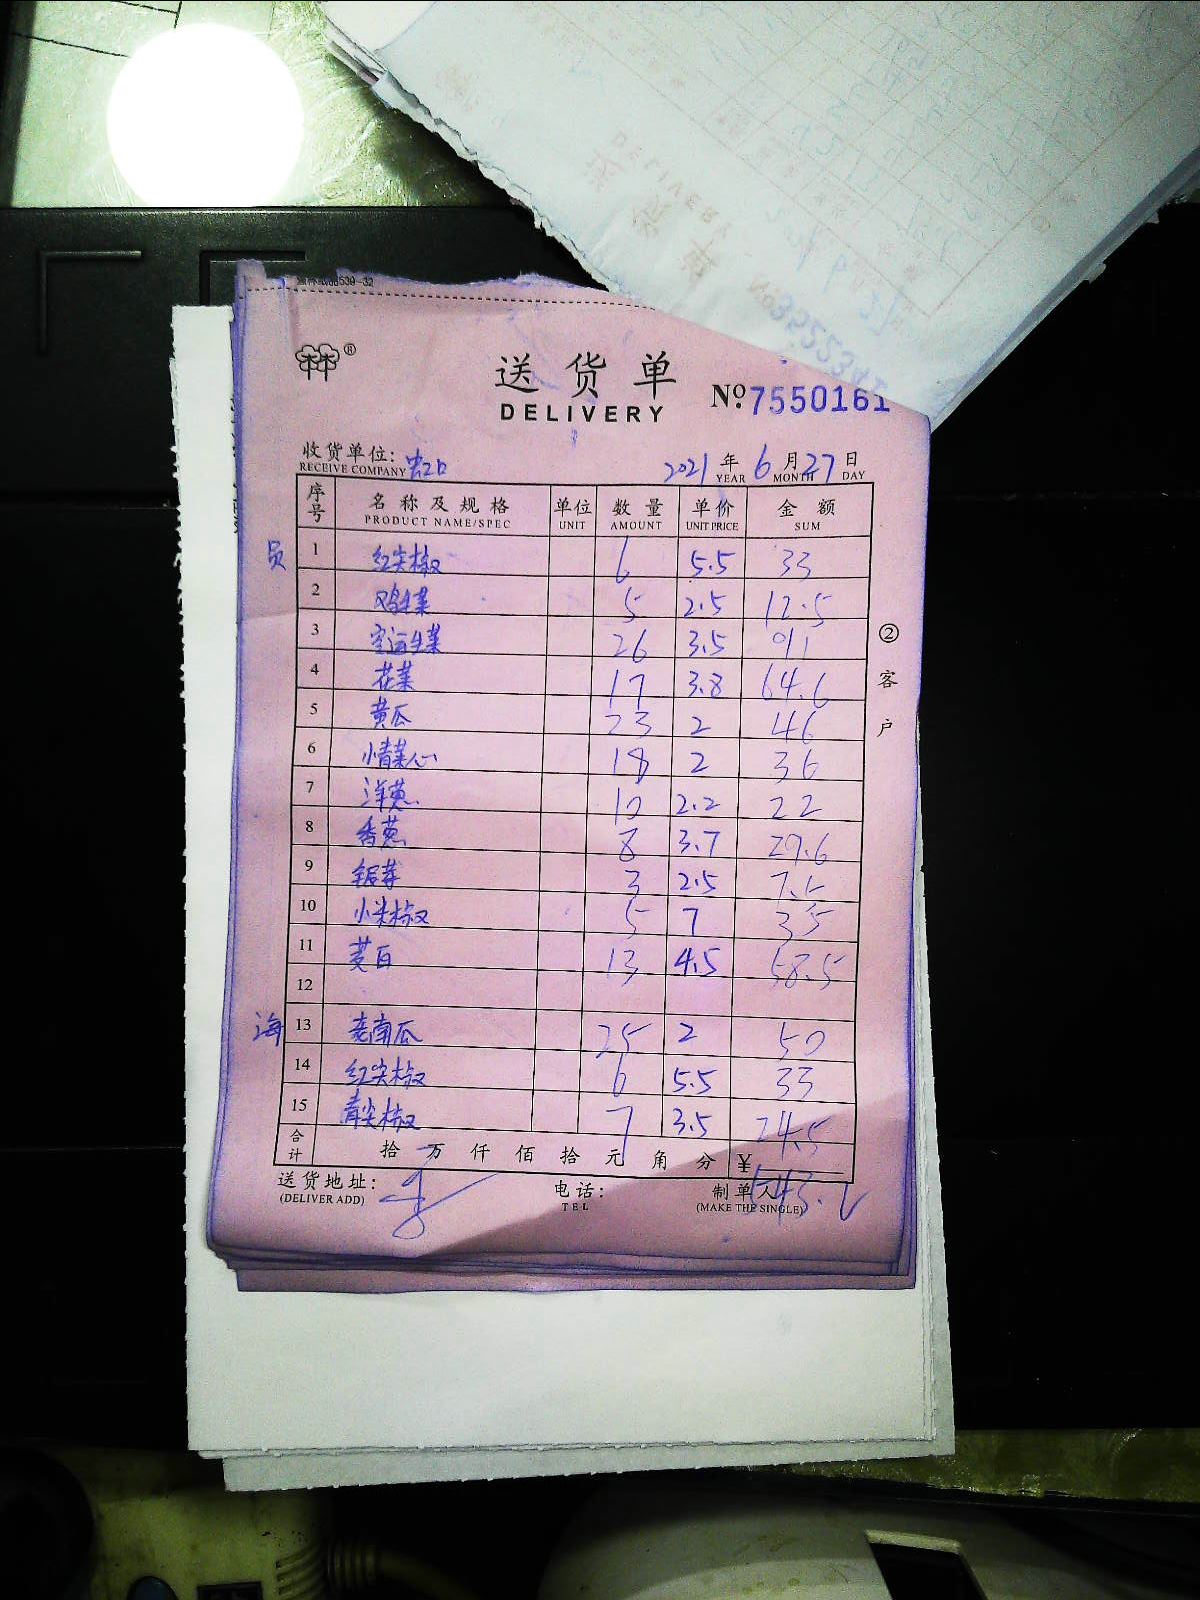 送货单
DELIVERY
No. 7550161
收货单位: 虹口
RECEIVE COMPANY
2021 年 6 月 27 日
YEAR MONTH DAY
序号 名称及规格 单位 数量 单价 金额
PRODUCT NAME/SPEC UNIT AMOUNT UNIT PRICE SUM
员 1 红尖椒 6 5.5 33
2 鸡毛菜 5 2.5 12.5
3 空运生菜 26 3.5 91
4 花菜 17 3.8 64.6
5 黄瓜 23 2 46
6 小青菜心 18 2 36
7 洋葱 10 2.2 22
8 香葱 8 3.7 29.6
9 银芽 3 2.5 7.5
10 小米椒 5 7 35
11 茭白 13 4.5 58.5
12
海 13 老南瓜 25 2 50
14 红尖椒 6 5.5 33
15 青尖椒 7 3.5 24.5
合计 拾 万 仟 佰 拾 元 角 分 ¥
543.2
送货地址: 电话: 制单人
(DELIVER ADD) TEL (MAKE THE SINGLE)
② 客户